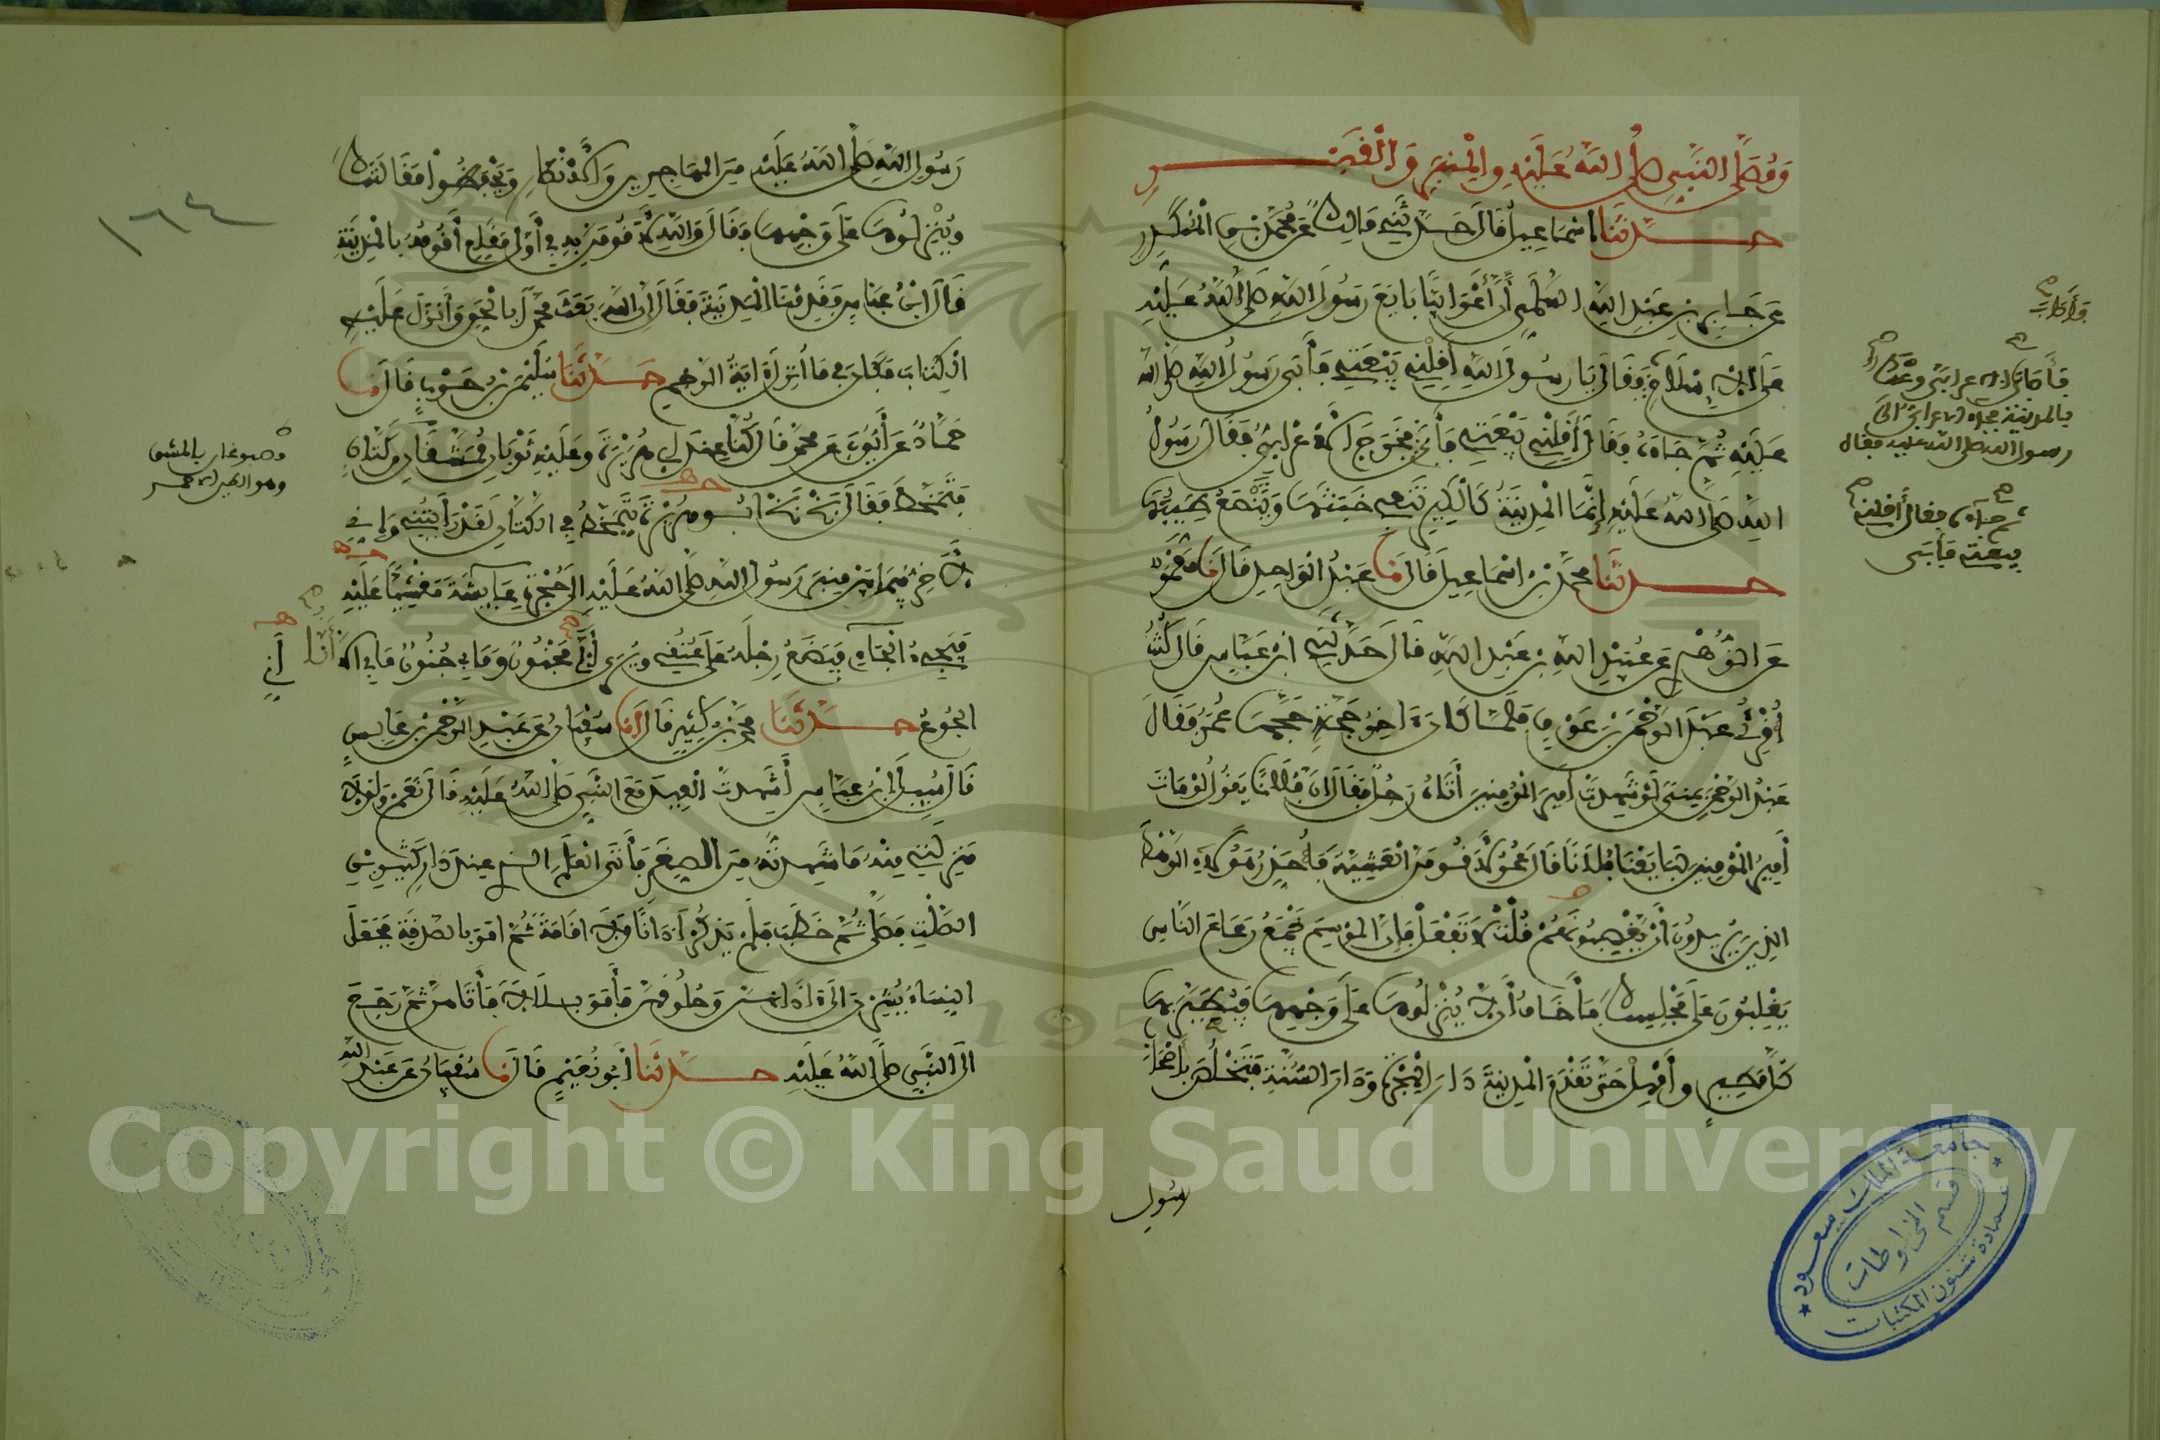 وَمُصَلَّى النَّبِيِّ صَلَّى اللَّهُ عَلَيْهِ وَالْمِنْبَرِ وَالْقَبْرِ
حَدَّثَنَا إِسْمَاعِيلُ قَالَ حَدَّثَنِي مَالِكٌ عَنْ مُحَمَّدِ بْنِ الْمُنْكَدِرِ
عَنْ جَابِرِ بْنِ عَبْدِ اللَّهِ السُّلَمِيِّ أَنَّ أَعْرَابِيًّا بَايَعَ رَسُولَ اللَّهِ صَلَّى اللَّهُ عَلَيْهِ
عَلَى الْإِسْلَامِ فَقَالَ يَا رَسُولَ اللَّهِ أَقِلْنِي بَيْعَتِي فَأَبَى رَسُولُ اللَّهِ صَلَّى اللَّهُ
عَلَيْهِ ثُمَّ جَاءَهُ فَقَالَ أَقِلْنِي بَيْعَتِي فَأَبَى فَخَرَجَ الْأَعْرَابِيُّ فَقَالَ رَسُولُ
اللَّهِ صَلَّى اللَّهُ عَلَيْهِ إِنَّمَا الْمَدِينَةُ كَالْكِيرِ تَنْفِي خَبَثَهَا وَيَنْصَعُ طِيبُهَا
حَدَّثَنَا مُحَمَّدُ بْنُ إِسْمَاعِيلَ قَالَ نَا عَبْدُ الْوَاحِدِ قَالَ نَا مَعْمَرٌ
عَنِ الزُّهْرِيِّ عَنْ عُبَيْدِ اللَّهِ بْنِ عَبْدِ اللَّهِ قَالَ حَدَّثَنِي ابْنُ عَبَّاسٍ قَالَ كُنْتُ
أُقْرِئُ عَبْدَ الرَّحْمَنِ بْنَ عَوْفٍ فَلَمَّا كَانَ آخِرُ حَجَّةٍ حَجَّهَا عُمَرُ فَقَالَ
عَبْدُ الرَّحْمَنِ بِمِنًى لَوْ شَهِدْتَ أَمِيرَ الْمُؤْمِنِينَ أَتَاهُ رَجُلٌ فَقَالَ إِنَّ فُلَانًا يَقُولُ لَوْ مَاتَ
أَمِيرُ الْمُؤْمِنِينَ لَبَايَعْنَا فُلَانًا قَالَ عُمَرُ لَأَقُومَنَّ الْعَشِيَّةَ فَأُحَذِّرُ هَؤُلَاءِ الرَّهْطَ
الَّذِينَ يُرِيدُونَ أَنْ يَغْصِبُوهُمْ قُلْتُ لَا تَفْعَلْ فَإِنَّ الْمَوْسِمَ يَجْمَعُ رَعَاعَ النَّاسِ
يَغْلِبُونَ عَلَى مَجْلِسِكَ فَأَخَافُ أَنْ لَا يُنْزِلُوهَا عَلَى وَجْهِهَا فَيُطَيِّرُ بِهَا
كُلُّ مُطِيرٍ وَأَمْهِلْ حَتَّى تَقْدَمَ الْمَدِينَةَ دَارَ الْهِجْرَةِ وَدَارَ السُّنَّةِ فَتَخْلُصَ بِأَصْحَابِ
رسول
ثم جاءه فقال أقلني
بيعتي فأبى
رَسُولِ اللَّهِ صَلَّى اللَّهُ عَلَيْهِ مِنَ الْمُهَاجِرِينَ وَالْأَنْصَارِ وَيَحْفَظُوا مَقَالَتَكَ
وَيُنْزِلُوهَا عَلَى وَجْهِهَا فَقَالَ وَاللَّهِ لَأَقُومَنَّ بِهِ فِي أَوَّلِ مَقَامٍ أَقُومُهُ بِالْمَدِينَةِ
قَالَ ابْنُ عَبَّاسٍ فَقَدِمْنَا الْمَدِينَةَ فَقَالَ إِنَّ اللَّهَ بَعَثَ مُحَمَّدًا بِالْحَقِّ وَأَنْزَلَ عَلَيْهِ
الْكِتَابَ فَكَانَ فِيمَا أُنْزِلَ آيَةُ الرَّجْمِ حَدَّثَنَا سُلَيْمَنُ بْنُ حَرْبٍ قَالَ نَا
حَمَّادٌ عَنْ أَيُّوبَ عَنْ مُحَمَّدٍ قَالَ كُنَّا عِنْدَ أَبِي هُرَيْرَةَ وَعَلَيْهِ ثَوْبَانِ مُمَشَّقَانِ مِنْ كَتَّانٍ
فَتَمَخَّطَ فَقَالَ بَخْ بَخْ أَبُو هُرَيْرَةَ يَتَمَخَّطُ فِي الْكَتَّانِ لَقَدْ رَأَيْتُنِي وَإِنِّي
لَأَخِرُّ فِيمَا بَيْنَ مِنْبَرِ رَسُولِ اللَّهِ صَلَّى اللَّهُ عَلَيْهِ إِلَى حُجْرَةِ عَائِشَةَ مَغْشِيًّا عَلَيَّ
فَيَجِيءُ الْجَائِي فَيَضَعُ رِجْلَهُ عَلَى عُنُقِي وَيُرَى أَنِّي مَجْنُونٌ وَمَا بِي جُنُونٌ مَا بِي إِلَّا
الْجُوعُ حَدَّثَنَا مُحَمَّدُ بْنُ كَثِيرٍ قَالَ أَنَا سُفْيَانُ عَنْ عَبْدِ الرَّحْمَنِ بْنِ عَابِسٍ
قَالَ سُئِلَ ابْنُ عَبَّاسٍ أَشَهِدْتَ الْعِيدَ مَعَ النَّبِيِّ صَلَّى اللَّهُ عَلَيْهِ قَالَ نَعَمْ وَلَوْلَا
مَنْزِلَتِي مِنْهُ مَا شَهِدْتُهُ مِنَ الصِّغَرِ فَأَتَى الْعَلَمَ الَّذِي عِنْدَ دَارِ كَثِيرِ بْنِ
الصَّلْتِ فَصَلَّى ثُمَّ خَطَبَ فَلَمْ يَذْكُرْ أَذَانًا وَلَا إِقَامَةً ثُمَّ أَمَرَ بِالصَّدَقَةِ فَجَعَلَ
النِّسَاءُ يُشِرْنَ إِلَى آذَانِهِنَّ وَحُلُوقِهِنَّ فَأَمَرَ بِلَالًا فَأَتَاهُنَّ ثُمَّ رَجَعَ
إِلَى النَّبِيِّ صَلَّى اللَّهُ عَلَيْهِ حَدَّثَنَا أَبُو نُعَيْمٍ قَالَ نَا سُفْيَانُ عَنْ عَبْدِ اللَّهِ
١٦٤
Copyright © King Saud University
195
جامعة الملك سعود
قسم المخطوطات
عمادة شئون المكتبات